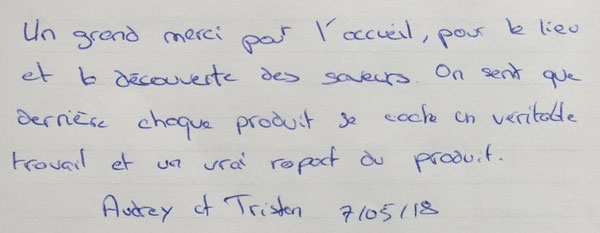 Un grand merci par l'accueil, pour le lieu
et la découverte des saveurs. On sent que
derrière chaque produit se cache un veritable
travail et un vrai respect du produit.
Audrey et Tristan 7/05/18